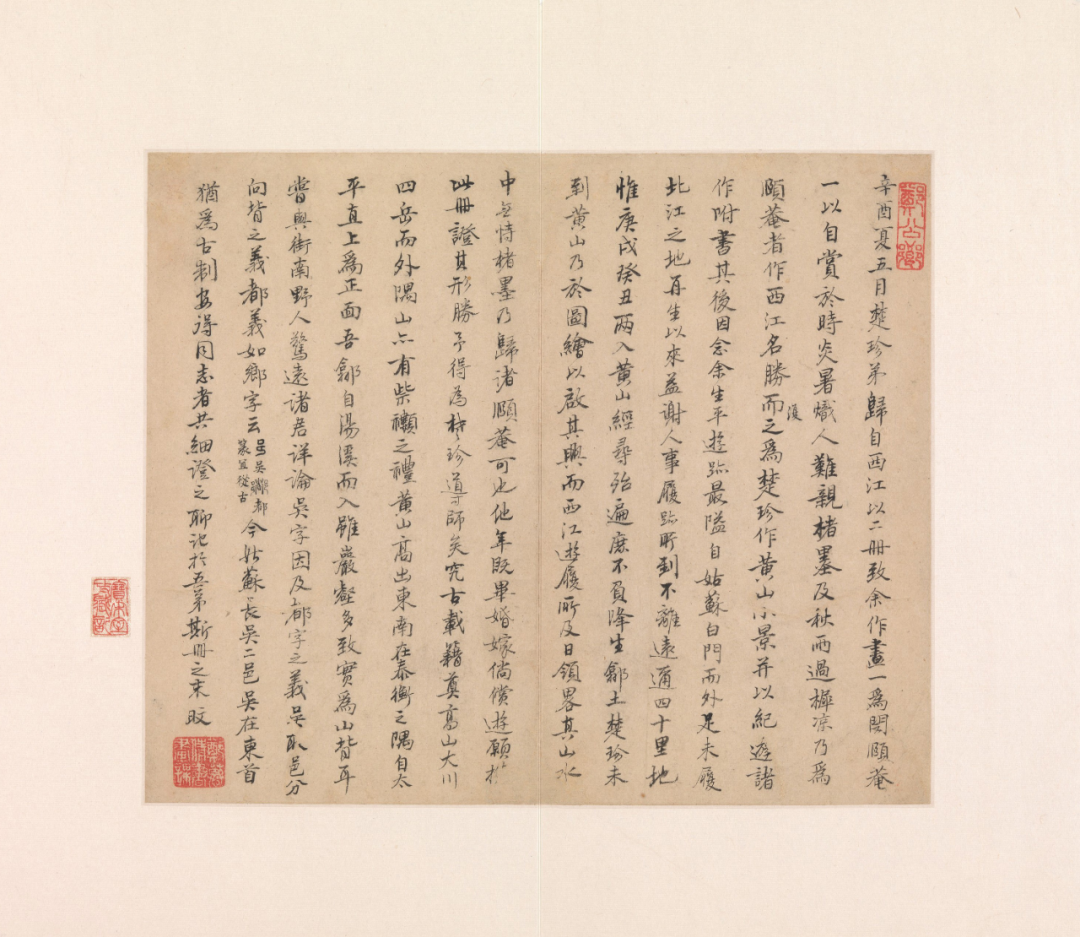 辛酉夏五月楚珍弟歸自西江以二冊致余作畫一爲閔頤菴
一以自賞於時炎暑熾人難親楮墨及秋雨過墀凉乃爲
頤菴者作西江名勝而復之爲楚珍作黄山小景并以紀遊諸
作附書其後因念余生平遊跡最隘自姑蘇白門而外足未履
北江之地再生以來益謝人事履跡所到不離遠邇四十里地
惟庚戌癸丑兩入黄山經尋殆遍庶不負降生鄉土楚珍未
到黄山乃於圖繪以啟其興而西江遊履所及日領畧其山水
中無恃楮墨乃歸諸頤菴可也他年既畢婚嫁倘償遊願於
此冊證其形勝予得為楚珍導師矣究古載籍奠高山大川
四岳而外隅山亦有柴禷之禮黄山高出東南在泰衡之隅自太
平直上爲正面吾鄉自湯溪而入雖巖壑多致實爲山背耳
嘗與街南野人驚遠諸君詳論吳字因及都字之義吳取邑分
向背之義都義如鄉字云
今姑蘇長吳二邑吳在東首
猶爲古制安得同志者共細證之聊記於吾弟斯冊之末旼